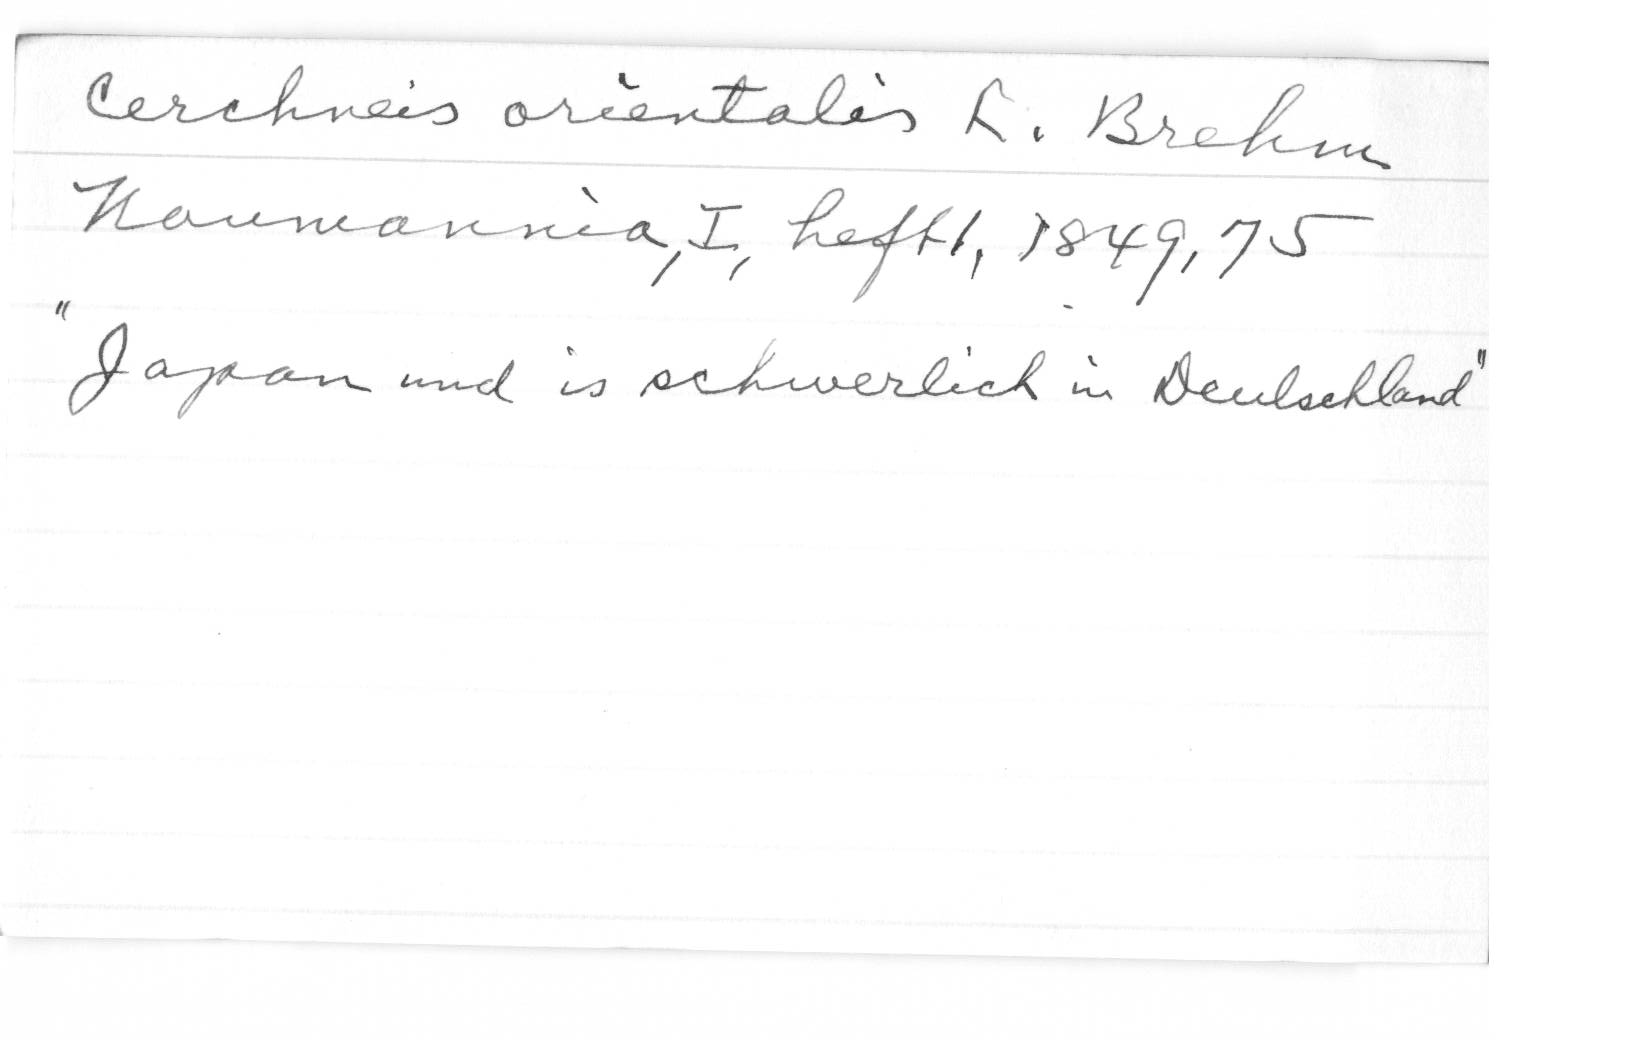 Cerchneis orientalis L. Brehm
Naumannia, I, heft 1, 1849, 75
"Japan und is schwerlich in Deutschland"